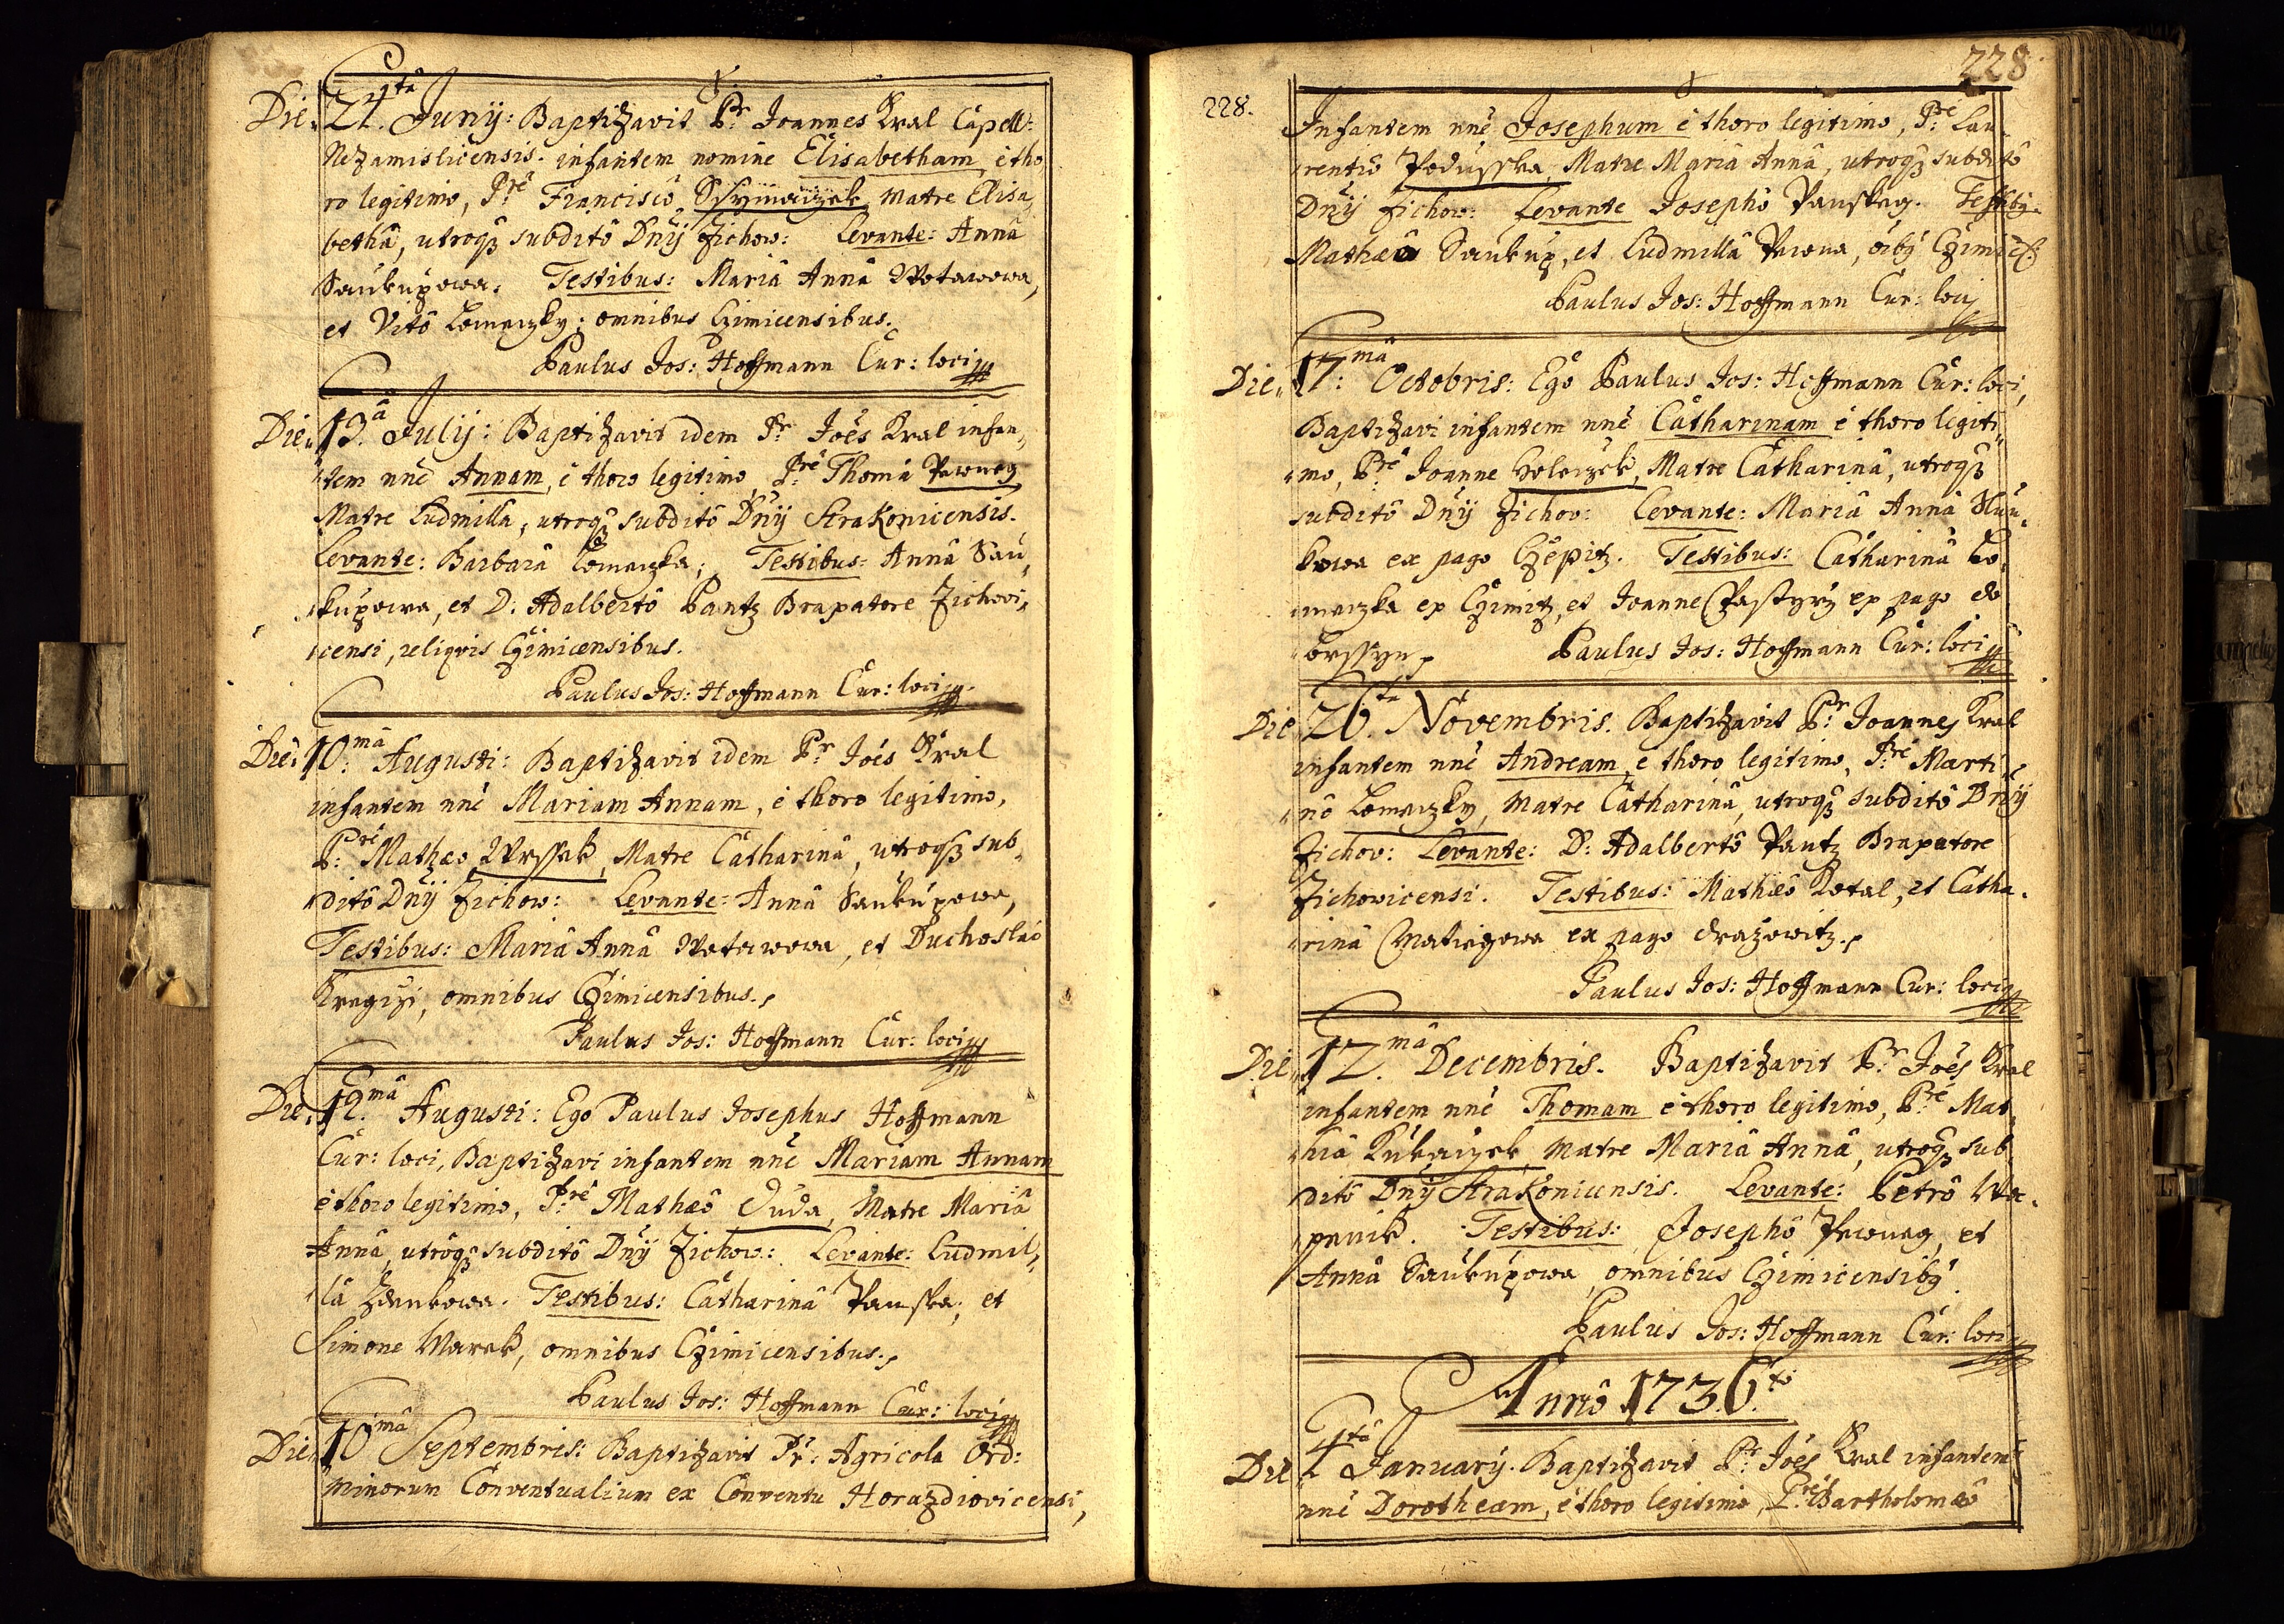 Die 24.tâ Junij: Baptizavit P.r Joannes Kral Capell:
Nezamislicensis. infantem nomine Elisabetham, è tho
ro legitimo, P.rê Franciscô Ssymaczek, Matre Elisa
bethâ, utroq₃ subditô Dnÿ Žichow: Levante: Annâ
Saukupowa. Testibus: Mariâ Annâ Wotawowa,
et Vitô Lomeczky; omnibus Czimicensibus.
Paulus Jos: Hoffmann Cur: loci
Die 13.â Julij: Baptizavit idem P.r Joês Kral infan
tem nnê Annam, è thoro legitimo, P.rê Thomâ Pewneg
Matre Ludmilla, utroq₃ subditô Dnÿ Strakonicensis.
Levante: Barbarâ Lomeczka; Testibus: Annâ Sau
kupowa, et D. Adalbertô Pantz Braxatore Žichovi
censi, reliqvis Czimicensibus.
Paulus Jos: Hoffmann Cur: loci
Die 10.mâ Augusti: Baptizavit idem P.r Joês Kral
infantem nnê Mariam Annam, è thoro legitimo,
P.rê Mathæo Wrssek, Matre Catharinâ, utroq₃ sub
ditô Dnÿ Žichow: Levante: Annâ Saukupowa,
Testibus: Mariâ Annâ Wotawowa, et Duchoslao
Kregizi, omnibus Czimicensibus.
Paulus Jos: Hoffmann Cur: loci
Die 12.mâ Augusti: Ego Paulus Josephus Hoffmann
Cur: loci, Baptizavi infantem nnê Mariam Annam
è thoro legitimo, P.rê Mathæô Duda, Matre Mariâ
Annâ, utroq₃ subditô Dnÿ Žichow: Levante: Ludmil
lâ Zdenkowa. Testibus: Catharinâ Panska, et
Simone Marek, omnibus Czimicensibus.
Paulus Jos: Hoffmann Cur: loci
Die 10.mâ Septembris: Baptizavit P.r Agricola Ord:
Minorum Conventualium ex Conventu Horazdiovicensi,
228
228.
Infantem nnê Josephum è thoro legitimo, P.rê Lau
rentiô Podusska, Matre Mariâ Annâ, utroq₃ subditô
Dnÿ Žichow: Levante Josephô Panskeg. Testibg.
Mathæô Saukup, et Ludmillâ Pewna, oibg Czimic:
Paulus Jos: Hoffmann Cur: loci
Die 17.mâ Octobris: Ego Paulus Jos: Hoffmann Cur: loci,
Baptizavi infantem nnê Catharinam è thoro legiti
mo, P.rê Joanne Holeczek, Matre Catharinâ, utroq₃
subditô Dnÿ Žichov: Levante: Mariâ Annâ
kowa ex pago Czepitz. Testibus: Catharinâ Lo
meczka ex Czimitz, et Joanne Pastyrz ex pago do
brssyn.
Paulus Jos: Hoffmann Cur: loci
Die 26.tâ Novembris. Baptizavit P.r Joannes Kral
infantem nnê Andream, è thoro legitimo, P.rê Marti
nô Lomeczky, Matre Catharinâ, utroq₃ subditô Dnÿ
Žichov: Levante: D: Adalbertô Pantz Braxatore
Žichovicensi. Testibus: Mathæô Kotal, et Catha
rinâ Matiegowa ex pago drazowitz.
Paulus Jos: Hoffmann Cur: loci
Die 12.mâ Decembris. Baptizavit P.r Joês Kral
infantem nnê Thomam è thoro legitimo, P.rê Mat
hiâ Kukaczek, Matre Mariâ Annâ, utroq₃ sub
ditô Dnÿ Strakonicensis. Levante: Petrô Wa
penik. Testibus: Josephô Pewneg, et
Annâ Saukupowa, omnibus Czimicensibg.
Paulus Jos: Hoffmann Cur: loci
Annô 1736.to
Die 4.tâ Januarÿ. Baptizavit P.r Joês Kral infantem
nnê Dorotheam, è thoro legitimo, P.rê Bartholomæô